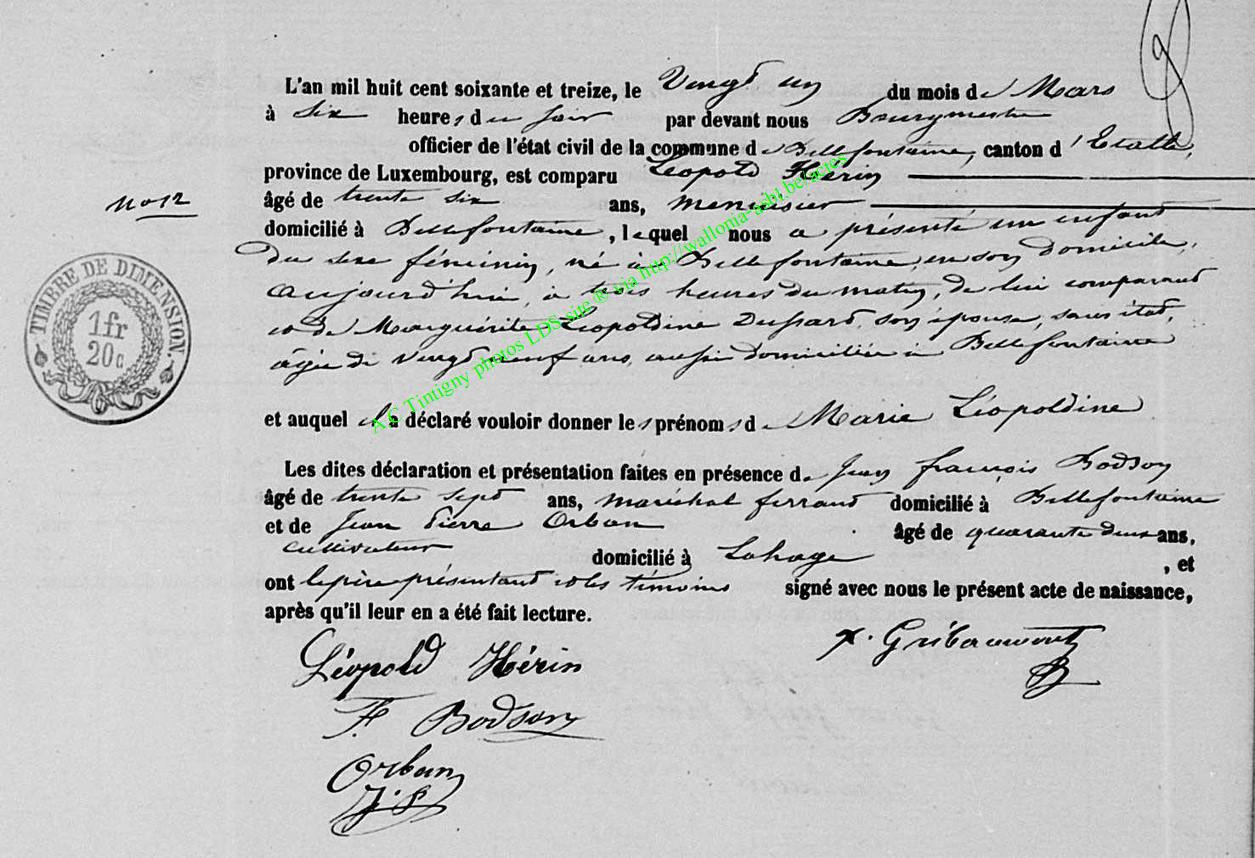 L'an mil huit cent soixante et treize, le Vingt un du mois de Mars
à six heures du soir par devant nous Bourgmestre
officier de l'état civil de la commune de Bellefontaine, canton d'Etalle,
province de Luxembourg, est comparu Léopold Hérin
âgé de trente six ans, menuisier
No 12
domicilié à Bellefontaine, lequel nous a présenté un enfant
du sexe féminin, né à Bellefontaine, en son domicile,
aujourd'hui, à trois heures du matin, de lui comparant
et de Marguérite Léopoldine Dussard, son épouse, sans état,
âgée de vingt neuf ans, aussi domiciliée à Bellefontaine
TIMBRE DE DIMENSION.
1 fr
20 c
et auquel il a déclaré vouloir donner les prénoms de Marie Léopoldine
Les dites déclaration et présentation faites en présence de Jean françois Bodson
âgé de trente sept ans, maréchal ferrand domicilié à Bellefontaine
et de Jean Pierre Orban âgé de quarante deux ans,
cultivateur domicilié à Lahage, et
ont le père présentant et les témoins signé avec nous le présent acte de naissance,
après qu'il leur en a été fait lecture.
Léopold Hérin
F. Bodson
Orban
J. P.
Gribaumont
AC Tintigny photos LDS site ® via http://wallonia-asbl.be/actes